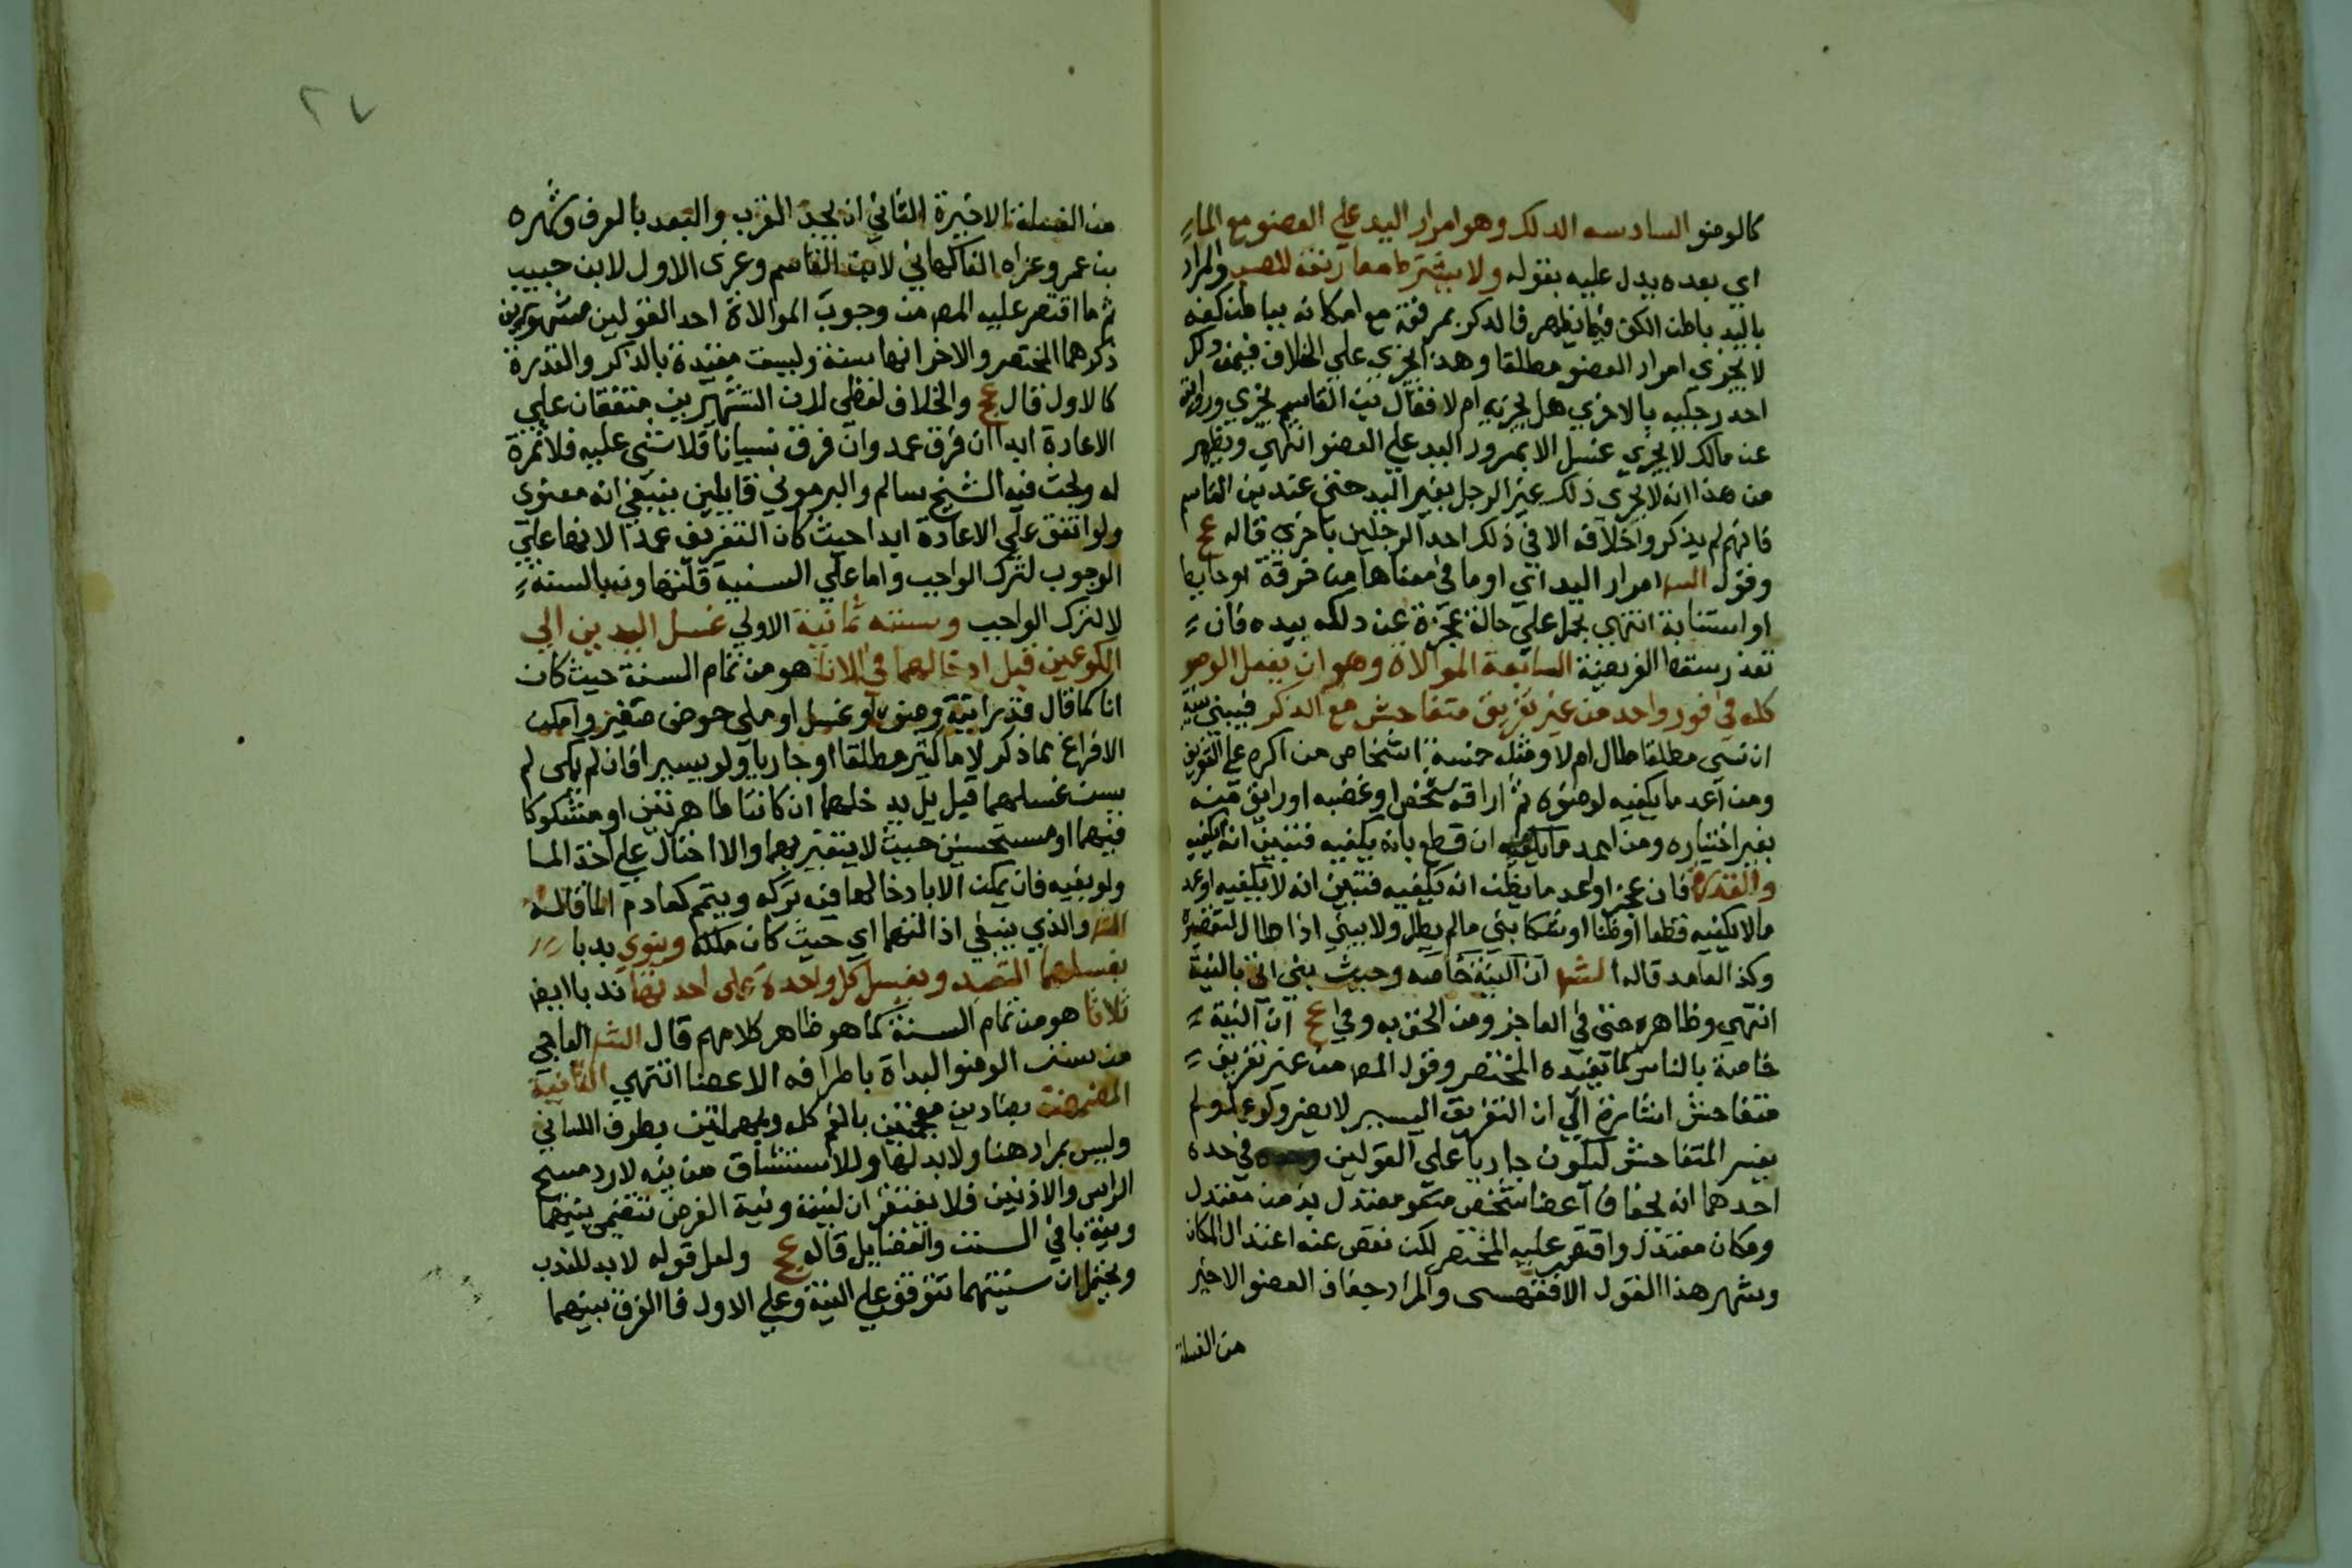 كالوضو السادسه الدلك وهو امرار اليد علي العضو مع الماء
اي بعده يدل عليه بقوله ولا يشترط مقارنته للصب والمراد
باليد باطن الكف فيما يظهر فالدلك بمرفقه مع امكانه بباطن كفه
لا يجزي امرار العضو مطلقا وهذا يجزي علي الخلاف فيمن دلك
احد رجليه بالاخري هل يجزيه ام لا فقال بن القاسم يجزي وروايته
عن مالك لا يجزي غسل الا بمرور اليد علي العضو انتهي ويظهر
من هذا انه لا يجزي ذلك غير الرجل بغير اليد حتي عند بن القاسم
فانهم لم يذكروا خلافه الا في ذلك احد الرجلين باخري قاله عج
وقول الشر امرار اليد اي او ما في معناها من خرقة او حايط
او استنابة انتهي يحمل علي حالة عجزه عن دلكه بيده فان
تعذر سقط الفريضة السابعة الموالاة وهو ان يفعل الوضو
كله في فور واحد من غير تفريق متفاحش مع الذكر فيبني بنية
ان نسي مطلقا طال ام لا ومثله خمسة اشخاص من اكره علي التفريق
ومن اعد ما يكفيه لوضوه ثم اراقه شخص او غضبه او اريق منه
بغير اختياره ومن اعد ما يكفيه ان قطع بانه يكفيه فتبين انه لا يكفيه
والقدرة فان عجز او اعد ما يظن انه يكفيه فتبين انه لا يكفيه او اعد
ما لا يكفيه قطعا او ظنا او شكا بني ما لم يطل ولا يبني اذا طال لتقصيره
وكذا العامد قاله الشر ان النية خاصه وحيث بني اتي بالنية
انتهي وظاهره حتي في العاجز ومن الحق به وفي عج ان النية
خاصة بالناسي كما يفيده المختصر وقول المص من غير تفريق
متفاحش اشارة الي ان التفريق اليسير لا يضر ولو عمدا ولم
يفسر المتفاحش ليكون جاريا علي القولين في حده
احدهما انه بجفاف اعضا شخص معتدل بزمن معتدل
ومكان معتدل واقتصر عليه المختصر لكن نقص عنه اعتدال المكان
وشهر هذا القول الاقفهسي والمراد جفاف العضو الاخير
من الغسلة
٢٧
من الغسلة الاخيرة الثاني ان يحد القرب والبعد بالعرف وشهره
بن عمر وعزاه الفاكهاني لابن القاسم وعزي الاول لابن حبيب
ثم ما اقتصر عليه المص من وجوب الموالاة احد القولين مشهورين
ذكرهما المختصر والاخر انها سنة وليست مقيدة بالذكر والقدرة
كالاول قال عج والخلاف لفظي لان التشهيرين متفقان علي
الاعادة ابدا ان فرق عمدا وان فرق نسيانا فلا شي عليه فلا ثمرة
له وبحث فيه الشيخ سالم والبرموني قايلين ينبغي انه معنوي
ولو اتفق علي الاعادة ابدا حيث كان التفريق عمدا لانها علي
الوجوب لترك الواجب واما علي السنية فلتهاونه بالسنة
لا لترك الواجب وسننه ثمانية الاولي غسل اليدين الي
الكوعين قبل ادخالهما في الانا هو من تمام السنة حيث كان
انا كما قال قدر انية وضو او غسل او ملي حوض صغير وامكن
الافراغ بما ذكر لا ما كثر مطلقا او جاريا ولو يسيرا فان لم يمكن لم
يسن غسلهما قبل بل يدخلهما ان كانتا طاهرتين او مشكوكا
فيهما او مستحسنين حيث لا يتغير بهما والا احتال علي اخذ الما
ولو بفيه فان لم يمكن الا بادخالهما فيه تركه ويتيمم كعادم الما قاله
الشر والذي ينبغي اذا التزما اي حيث كان ملكه وينوي ندبا
بغسلهما التعبد ويغسل كل واحدة علي احدتها ندبا ايضا
ثلاثا هو من تمام السنة كما هو ظاهر كلامهم قال الشر الباجي
من سنن الوضو البداة باطراف الاعضا انتهي الثانية
المضمضة بضادين معجمتين بالفم كله وبمهملتين بطرف اللسان
وليس بمراد هنا ولا بد لها وللاستنشاق من نية لا رد مسح
الراس والاذنين فلا يفتقران لنية ونية الفرض تتضمن نيتهما
ونية باقي السنن والفضايل قاله عج ولعل قوله لا بد للندب
ويحتمل ان سنيتهما تتوقف علي النية وعلي الاول فالفرق بينهما